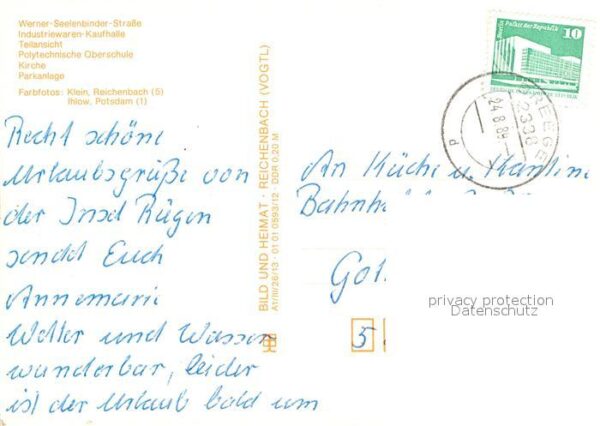 Werner-Seelenbinder-Straße
Industriewaren-Kaufhalle
Teilansicht
Polytechnische Oberschule
Kirche
Parkanlage
Farbfotos: Klein, Reichenbach (5)
Ihlow, Potsdam (1)
Recht schöne
Urlaubsgrüße von
der Insel Rügen
sendet Euch
Annemarie
Wetter und Wasser
wunderbar, leider
ist der Urlaub bald um
BILD UND HEIMAT · REICHENBACH (VOGTL)
A1/III/26/13 · 01 01 0593/12 · DDR 0,20 M
10
Berlin, Palast der Republik
BREEGE
2338
24.8.89
P
An Küche u. Kantine
Bahnh
Got
5
privacy protection
Datenschutz